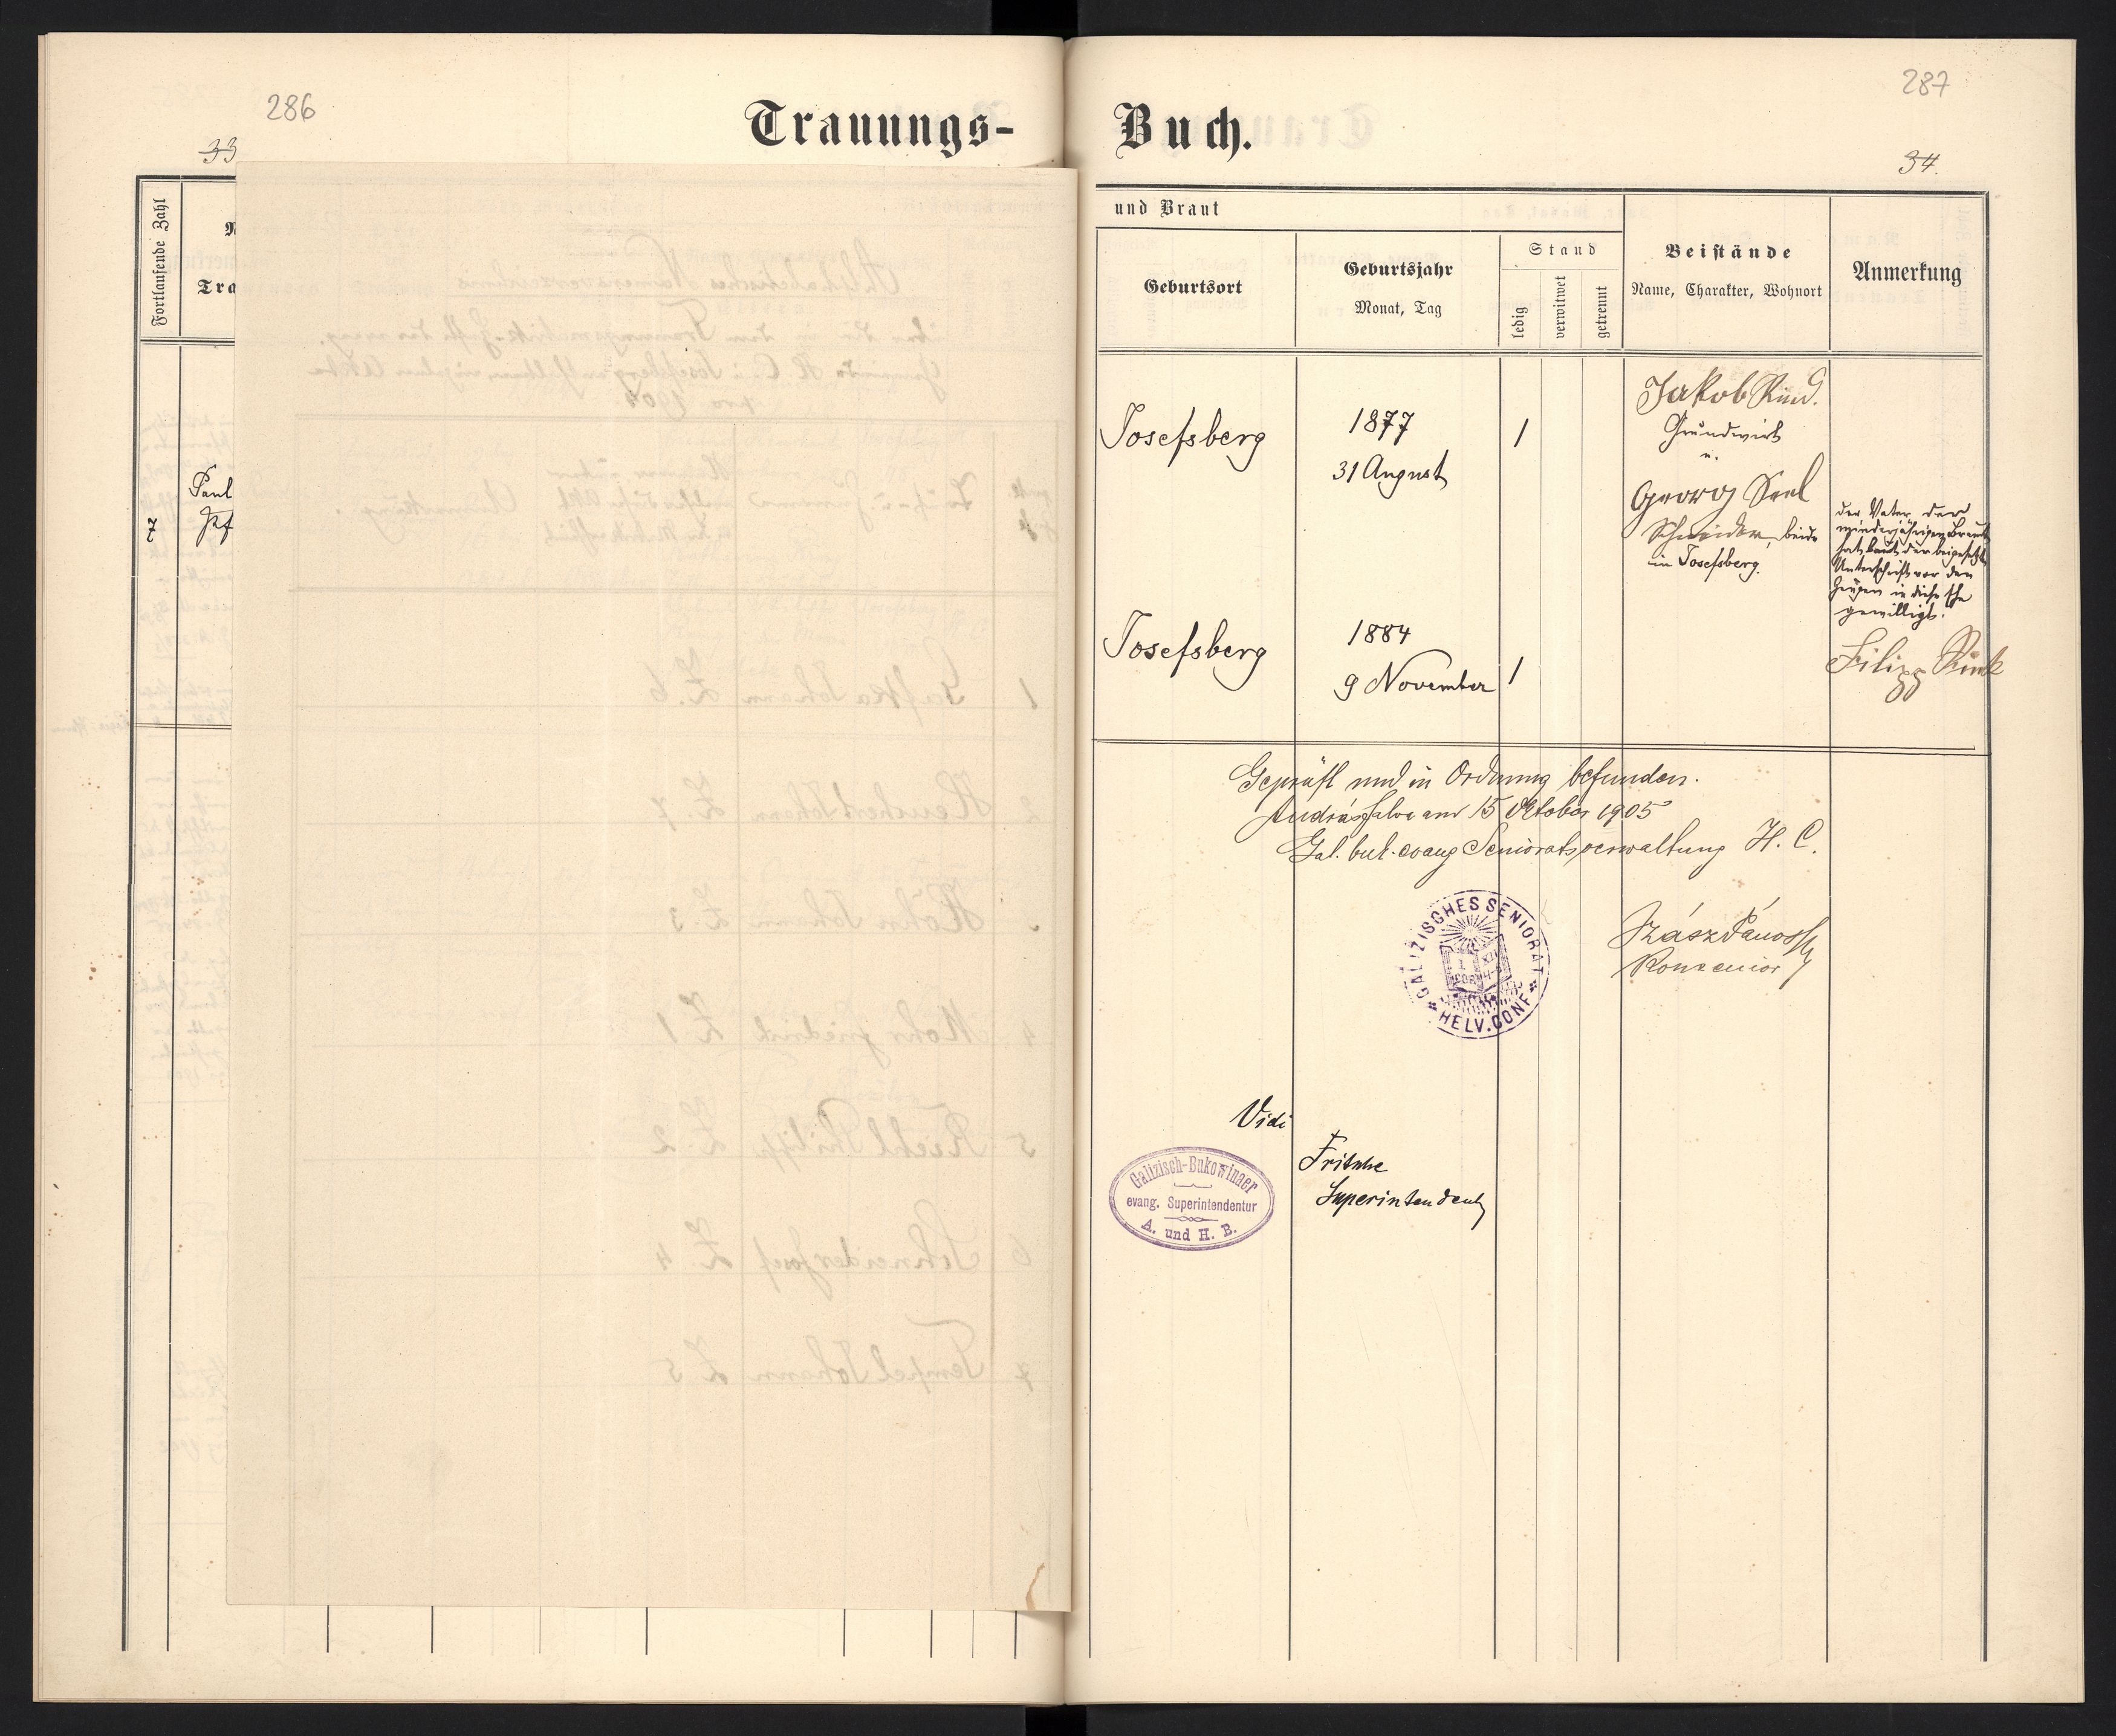 286
Trauungs-
33
Fortlaufende Zahl
Tra
Paul
7
Buch.
287
34.
und Braut
Geburtsort
Geburtsjahr
Monat, Tag
Stand
ledig
verwitwet
getrennt
Beistände
Name, Charakter, Wohnort
Anmerkung
Josefsberg
1877
31 August
1
Jakob
Grundwirt
u.
Georg
Schneider, beide
in Josefsberg.
der Vater der
minderjährigen Braut
hat laut der beigesetzten
Unterschrift vor den
Zeugen in diese Ehe
gewilligt.
Filipp Rink
Josefsberg
1884
9 November
1
Geprüft und in Ordnung befunden.
Andrásfalva am 15 Oktober 1905
Gal. buk. evang Senioratsverwaltung H. C.
GALIZISCHES SENIORAT
HELV. CONF.
Szász János
Konsenior
Vidi
Galizisch-Bukowinaer
evang. Superintendentur
A. und H. B.
Fritsche
Superintendent
Alphabetisches Namensverzeichnis
über die in dem Trauungsmatrik-Hefte der evang.
Gemeinde H. C. in Josefsberg enthaltenen einzelnen Akte
pro 1904
Anmerkung
1 Johann Z. 6
2 Reichert Johann Z. 7
Köhn Johann Z. 3
4 Mohr Friedrich Z 1
5 Riehl Philipp Z. 2
6 Schneider Josef Z. 4
7 Tempel Johann Z 5